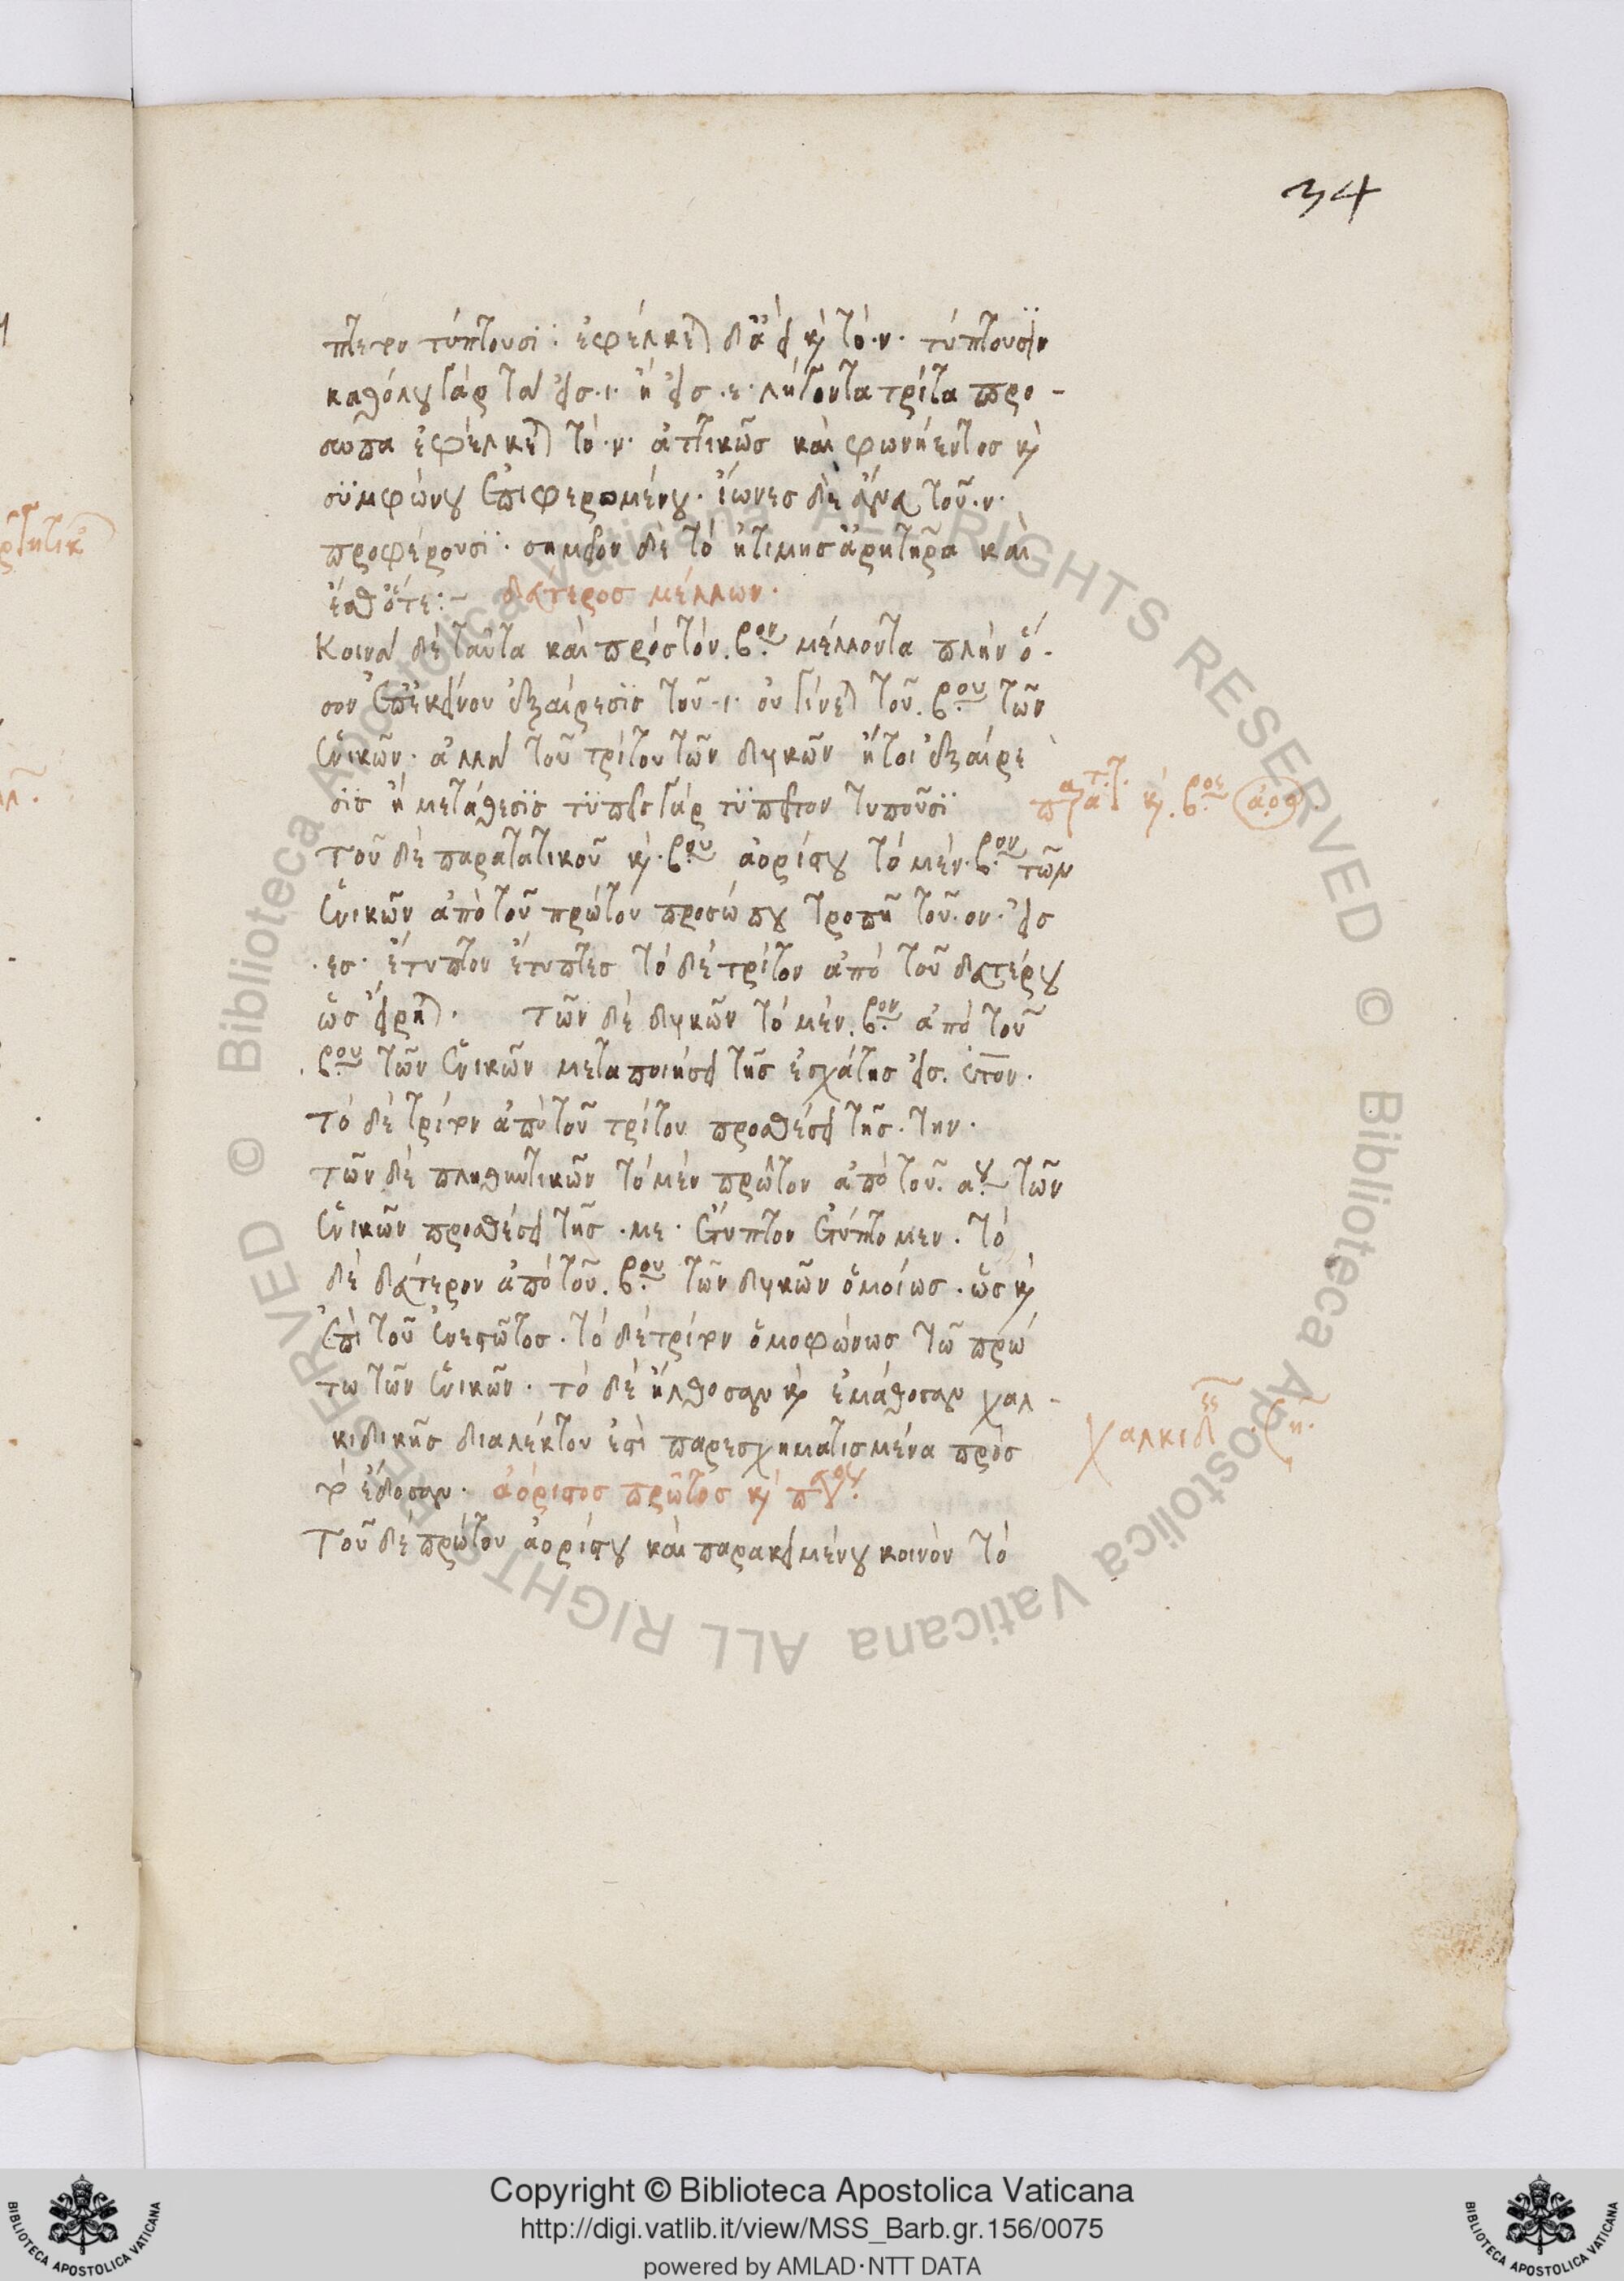 34
πτερον τύπτουσϊ· ἐφέλκεται δὲ ἀεὶ καὶ τὸ·ν· τύπτουσϊν
καθόλου γὰρ τὰ εἰσ·ι· ἢ εἰσ·ε·λήγοντα τρίτα προ-
σωπα ἐφέλκεται τὸ·ν· ἀττικῶσ καὶ φωνήεντοσ καὶ
σϋμφώνου ἐπιφερομένου· ἴωνεσ δὲ ἄνευ τοῦ·ν·
προφέρουσϊ· σημεῖον δὲ τὸ ἠτίμησ ἀρητῆρα καὶ
ἔσθ ὅτε:~ δεύτεροσ μέλλων·
Κοινὰ δὲ ταῦτα καὶ πρὸσ τὸν.βον μέλλοντα πλὴν ὅ-
σον ἐπεκείνου ἐξαίρεσϊσ τοῦ·ι· οὐ γίνεται τοῦ.βου τῶν
ἑνικῶν· ἀλλὰ τοῦ τρίτου τῶν δυϊκῶν ἤτοι ἐξαίρε
σϊσ ἢ μετάθεσϊσ τϋπεῖσ γὰρ τϋπεῖτον τυποῦσϊ
παρατατ καὶ.βοσ ἀορ
Τοῦ δὲ παρατατικοῦ καὶ·βου ἀορίστου τὸ μὲν·βον τῶν
ἑνικῶν ἀπὸ τοῦ πρώτου προσώπου τροπῇ τοῦ·ον·εἰσ
·εσ· ἔτυπτον ἔτυπτεσ τὸ δὲ τρίτον ἀπὸ τοῦ δευτέρου
ὡσ εἴρηται· Τῶν δὲ δυϊκῶν τὸ μὲν.βον ἀπὸ τοῦ
.βου τῶν ἑνικῶν μεταποιήσει τῆσ ἐσχάτησ εἰσ.
τὸ δὲ τρίτον ἀπὸ τοῦ τρίτου προσθέσει τῆσ·την·
τῶν δὲ πληθυντικῶν τὸ μὲν πρῶτον ἀπὸ τοῦ.αου τῶν
ἑνικῶν προσθέσει τῆσ·με· ἔτυπτον ἐτύπτομεν·τὸ
δὲ δεύτερον ἀπὸ τοῦ.βου τῶν δυϊκῶν ὁμοίωσ·ὡσ καὶ
ἐπὶ τοῦ ἐνεστῶτοσ·τὸ δὲ τρίτον ὁμοφώνωσ τῶ πρώ
τω τῶν ἑνικῶν· τὸ δὲ ἤλθοσαν καὶ ἐμάθοσαν χαλ-
χαλκιδέεσ
κιδικῆσ διαλέκτου ἐστὶ παρεσχηματισμένα πρὸσ
τὸ ἔδοσαν· ἀόριστοσ πρῶτοσ καὶ
Τοῦ δὲ πρώτου ἀορίστου καὶ παρακειμένου κοινὸν τὸ
Copyright © Biblioteca Apostolica Vaticana
http://digi.vatlib.it/view/MSS_Barb.gr.156/0075
powered by AMLAD·NTT DATA
BIBLIOTECA APOSTOLICA VATICANA
BIBLIOTECA APOSTOLICA VATICANA
© Biblioteca Apostolica Vaticana ALL RIGHTS RESERVED
© Biblioteca Apostolica Vaticana ALL RIGHTS RESERVED